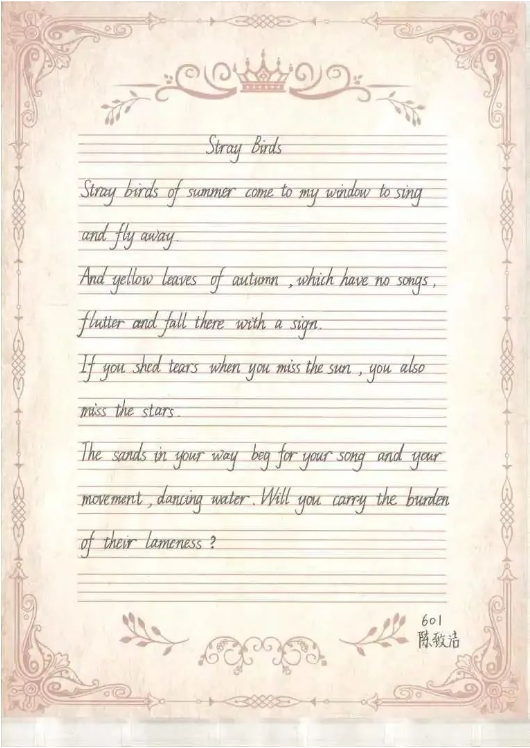 Stray Birds
Stray birds of summer come to my window to sing
and fly away.
And yellow leaves of autumn , which have no songs ,
flutter and fall there with a sign.
If you shed tears when you miss the sun , you also
miss the stars.
The sands in your way beg for your song and your
movement , dancing water. Will you carry the burden
of their lameness ?
601
陈敏洁